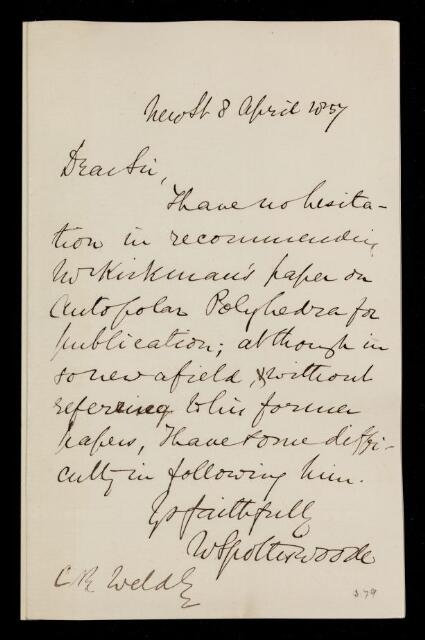 New St 8 April 1857
Dear Sir,
I have no hesita-
tion in recommending
Mr Kirkman's paper on
Autopolar Polyhedra for
publication; although in
so new a field, & without
referring to his former
papers, I have some diffi-
culty in following him.
Yrs faithfully
W Spottiswoode
C R Weld Esq